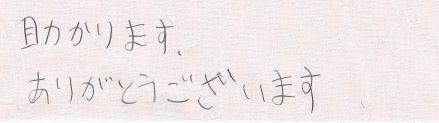 助かります、
ありがとうございます